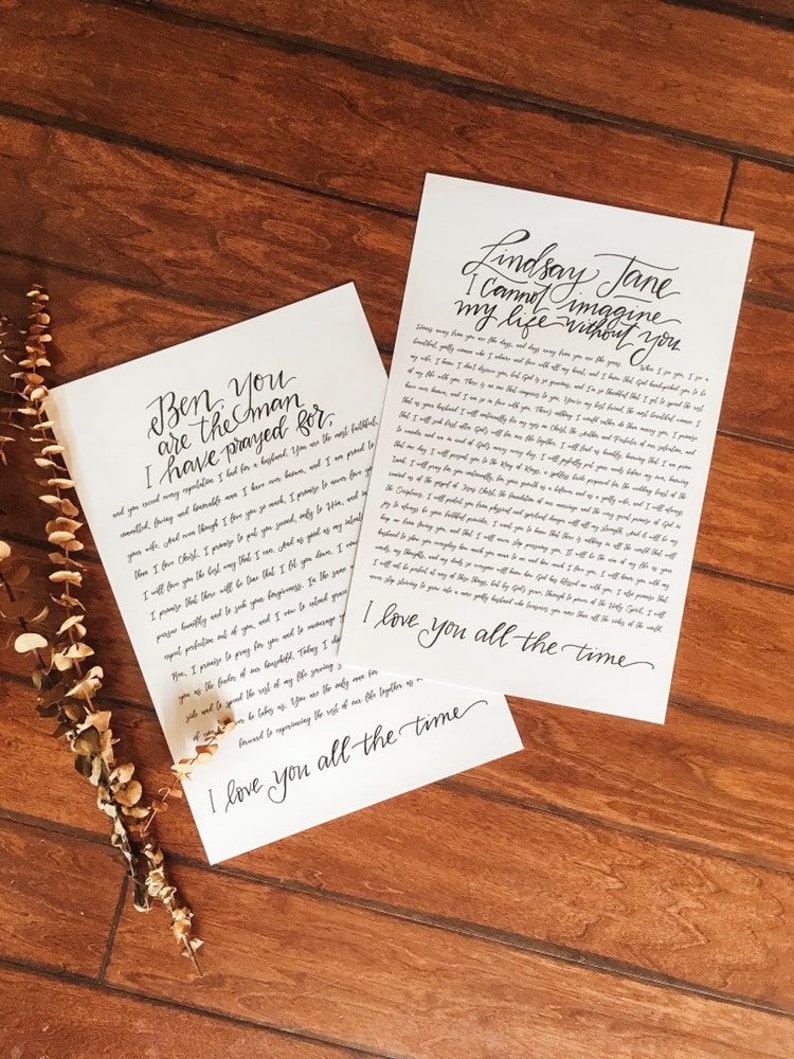 Ben, you
are the man
I have prayed for,
and you exceed every expectation I had for a husband. You are the most faithful,
committed, loving and honorable man I have ever known, and I am proud to
your wife. And even though I love you so much, I promise to never love you
than I love Christ. I promise to put you second, only to Him, and in
I will love you the best way that I can. And as good as my intentions
I promise that there will be times that I fail you. I vow
pursue humility and to seek your forgiveness. In the same
expect perfection out of you, and I vow to extend grace
Ben, I promise to pray for you and to encourage
you as the leader of our household. Today I
side and to spend the rest of my life serving
where he takes us. You are the only one for
forward to experiencing the rest of our life together as
I love you all the time
Lindsay Jane
I cannot imagine
my life without you.
Hours away from you are like days, and days away from you are like years. When I see you, I see a
beautiful, godly woman who I adore and love with all my heart, and I know that God handpicked you to be
my wife. I know I don't deserve you, but God is so gracious, and I'm so thankful that I get to spend the rest
of my life with you. There is no one that compares to you. You're my best friend, the most beautiful woman I
have ever known, and I am so in love with you. There's nothing I would rather do than marry you. I promise
that as your husband I will continually fix my eyes on Christ, the Author and Perfecter of our salvation, and
that I will seek first after God's will for our life together. I will lead us humbly, knowing that I am prone
to wander and am in need of God's mercy every day. I will joyfully put your needs before my own, knowing
that one day I will present you to the King of Kings, a spotless bride prepared for the wedding feast of the
Lamb. I will pray for you continually, for your growth as a believer and as a godly wife, and I will always
remind us of the gospel of Jesus Christ, the foundation of our marriage and the very great promise of God in
the Scriptures. I will protect you from physical and spiritual danger with all my strength. And it will be my
joy to always be your faithful provider. I want you to know that there is nothing in all the world that will
keep me from loving you, and that I will never stop pursuing you. It will be the aim of my life as your
husband to show you everyday how much you mean to me and how much I love you. I will honor you with my
words, my thoughts, and my deeds so everyone will know how God has blessed me with you. I also promise that
I will not be perfect at any of these things, but by God's grace, through the power of the Holy Spirit, I will
never stop striving to grow into a more godly husband who treasures you more than all the riches of the world.
I love you all the time